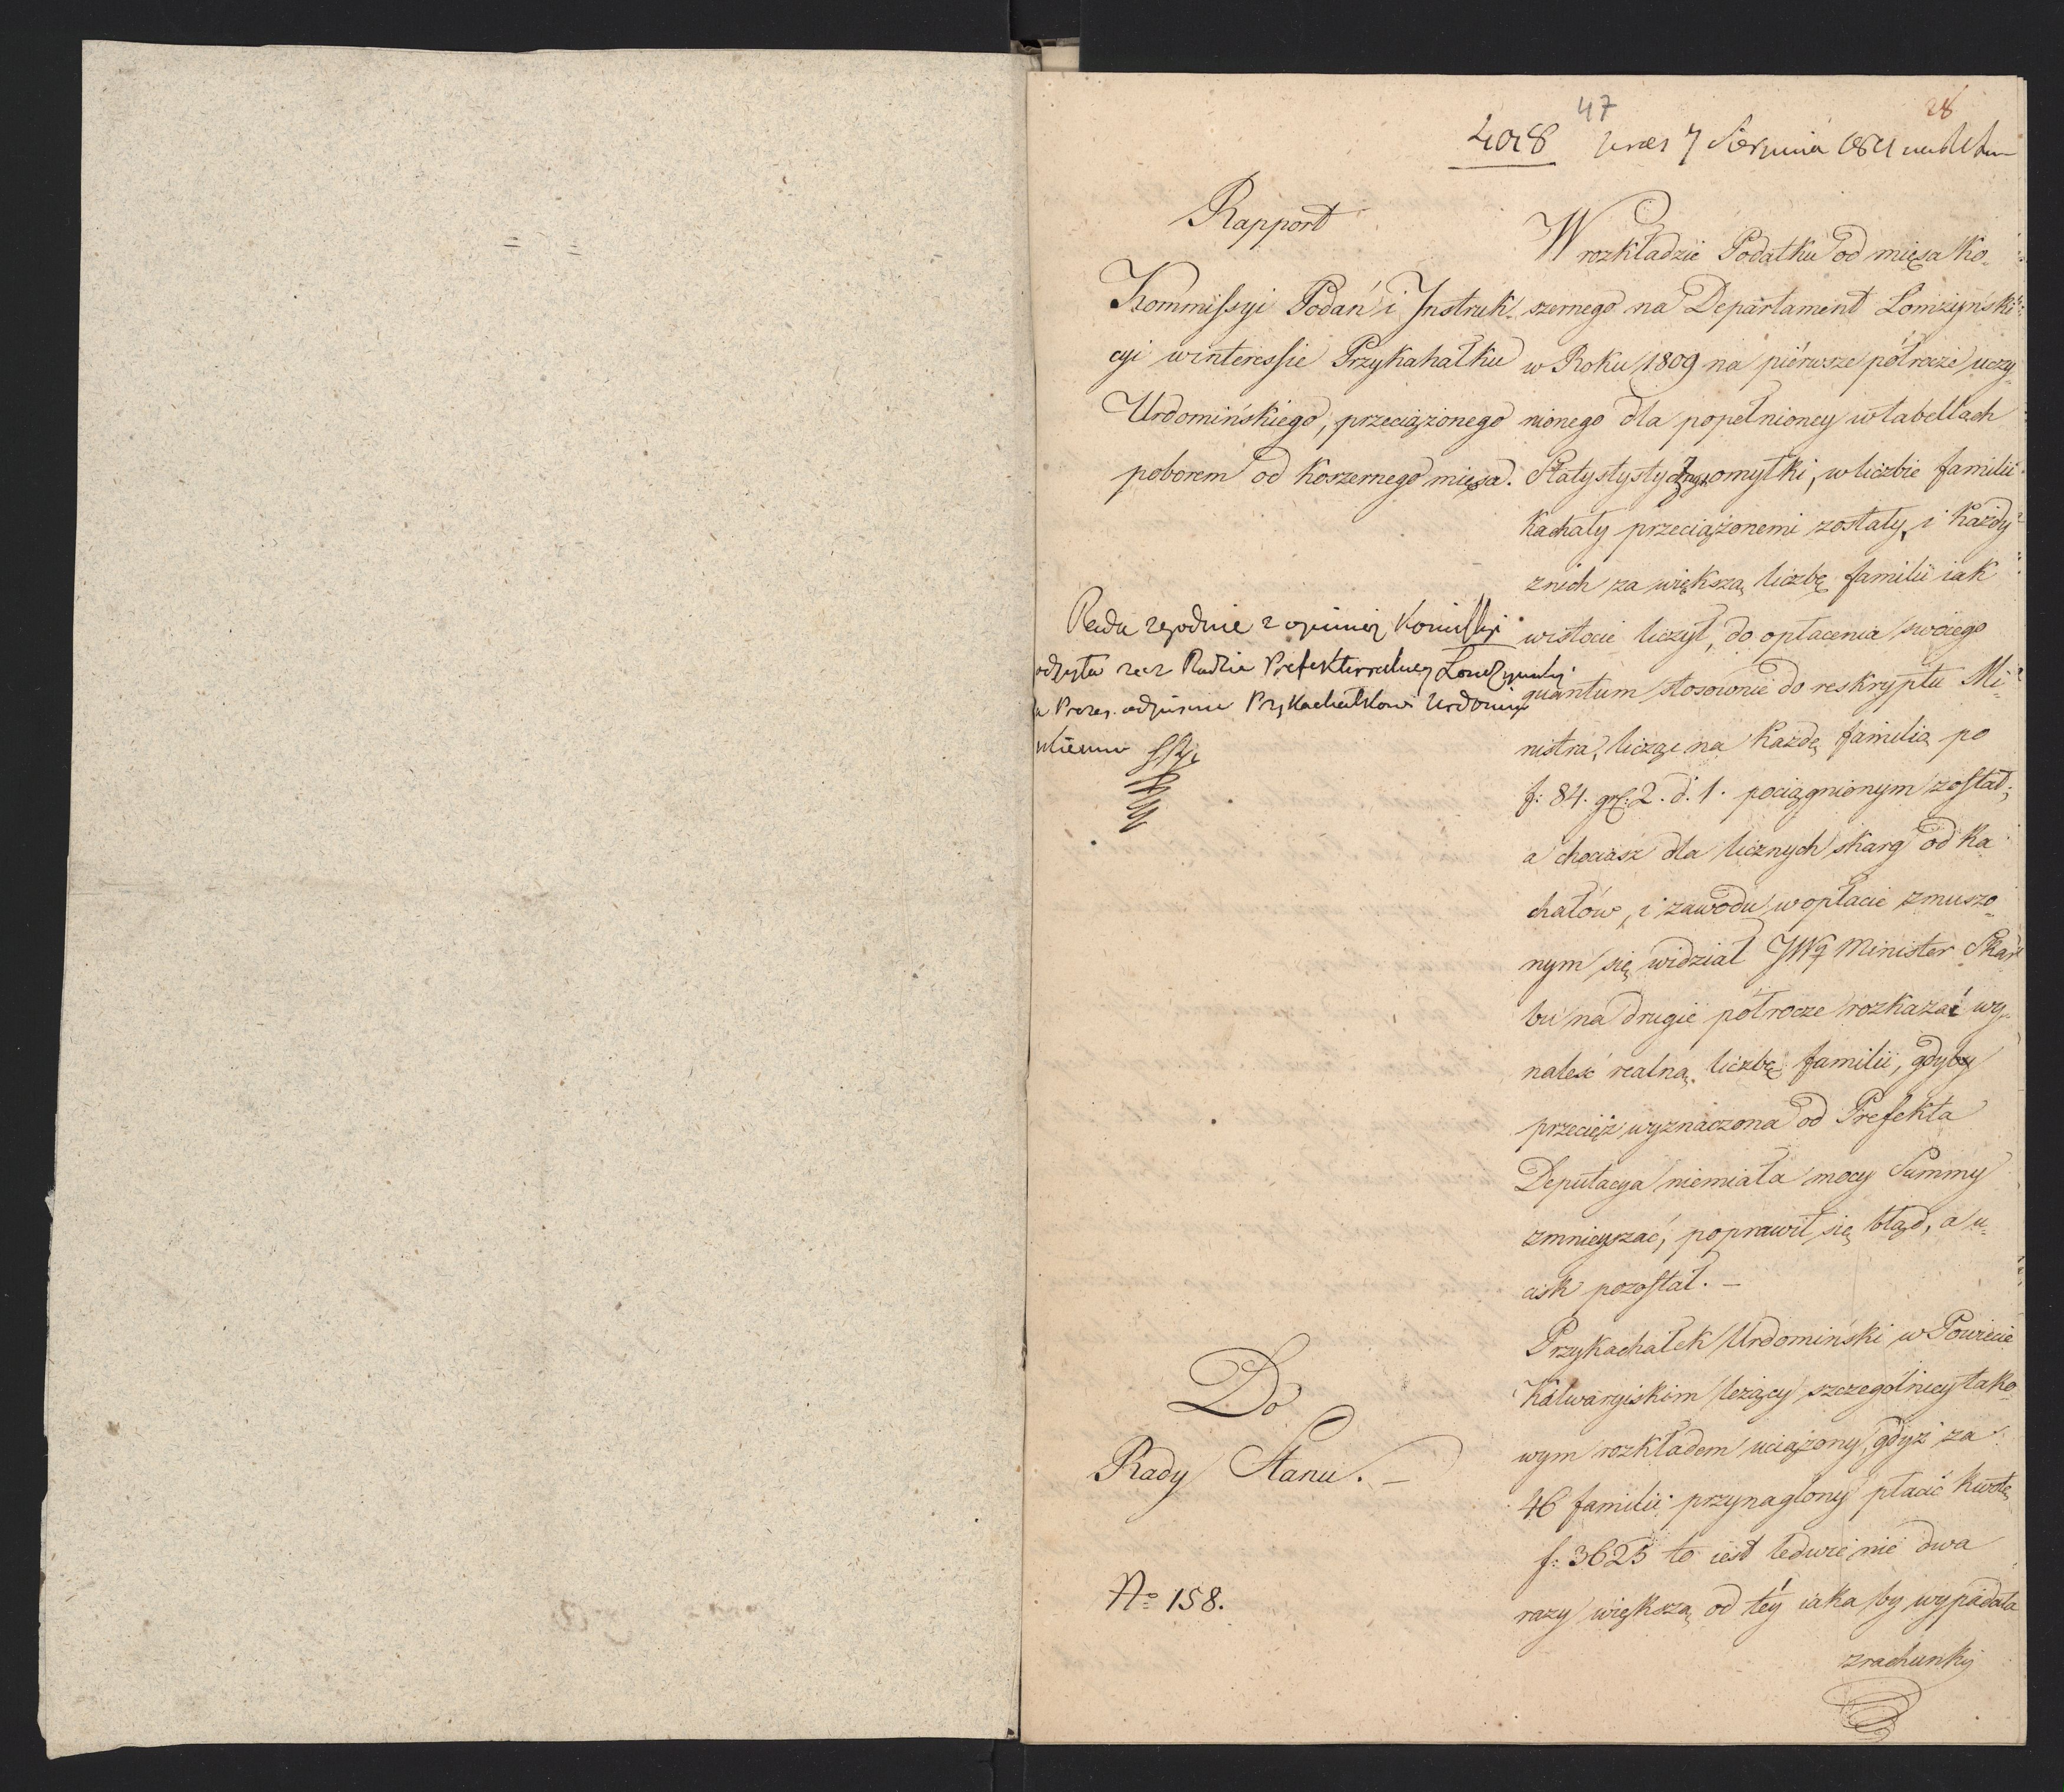 47
28
4018 7 Sierpnia
Rapport
Kommissyi Podań i Instruk-
cyi w interessie Przykahałku
Urdomińskiego, przeciążonego
poborem od Koszernego mięsa.
Rada zgodnie z opinią Komissyi
odsyła rzecz Radzie Prefekturalney Łomżyńskiey
a Prezes odpisze Przykachałkowi Urdomiń
skiemu
Do
Rady Stanu. –
No 158.
W rozkładzie Podatku od mięsa ko-
szernego na Departament Łomżyński
w Roku 1809 na piérwsze półrocze uczy-
nionego dla popełnioney w tabellach
Statystystycznych omyłki, w liczbie familii
Kachały przeciążonemi zostały, i Każdy
z nich za większą liczbę familii iak
wistocie liczył, do opłacenia swoiego
quantum stosownie do reskryptu Mi-
nistra, licząc na Każdę familią po
f: 84. gr: 2. d. 1. pociągnionym został;
a chociasz dla licznych skarg od Ka-
chałów, i zawodu w opłacie zmuszo-
nym się widział JW Minister Skar-
bu na drugie półrocze rozkazać wy-
naleść realną liczbę familii, gdyby
przecięż wyznaczona od Prefekta
Deputacya niemiała mocy Summy
zmnieyszać, poprawił się błąd, a u-
cisk pozostał. –
Przykachałek Urdomiński w Powiecie
Kalwaryiskim leżący szczególniey tako-
wym rozkładem uciążony, gdyż za
46 familii przynaglony płacić kwotę
f: 3625 to iest ledwie nie dwa
razy większą od téy iaka by wypadała
z rachunku